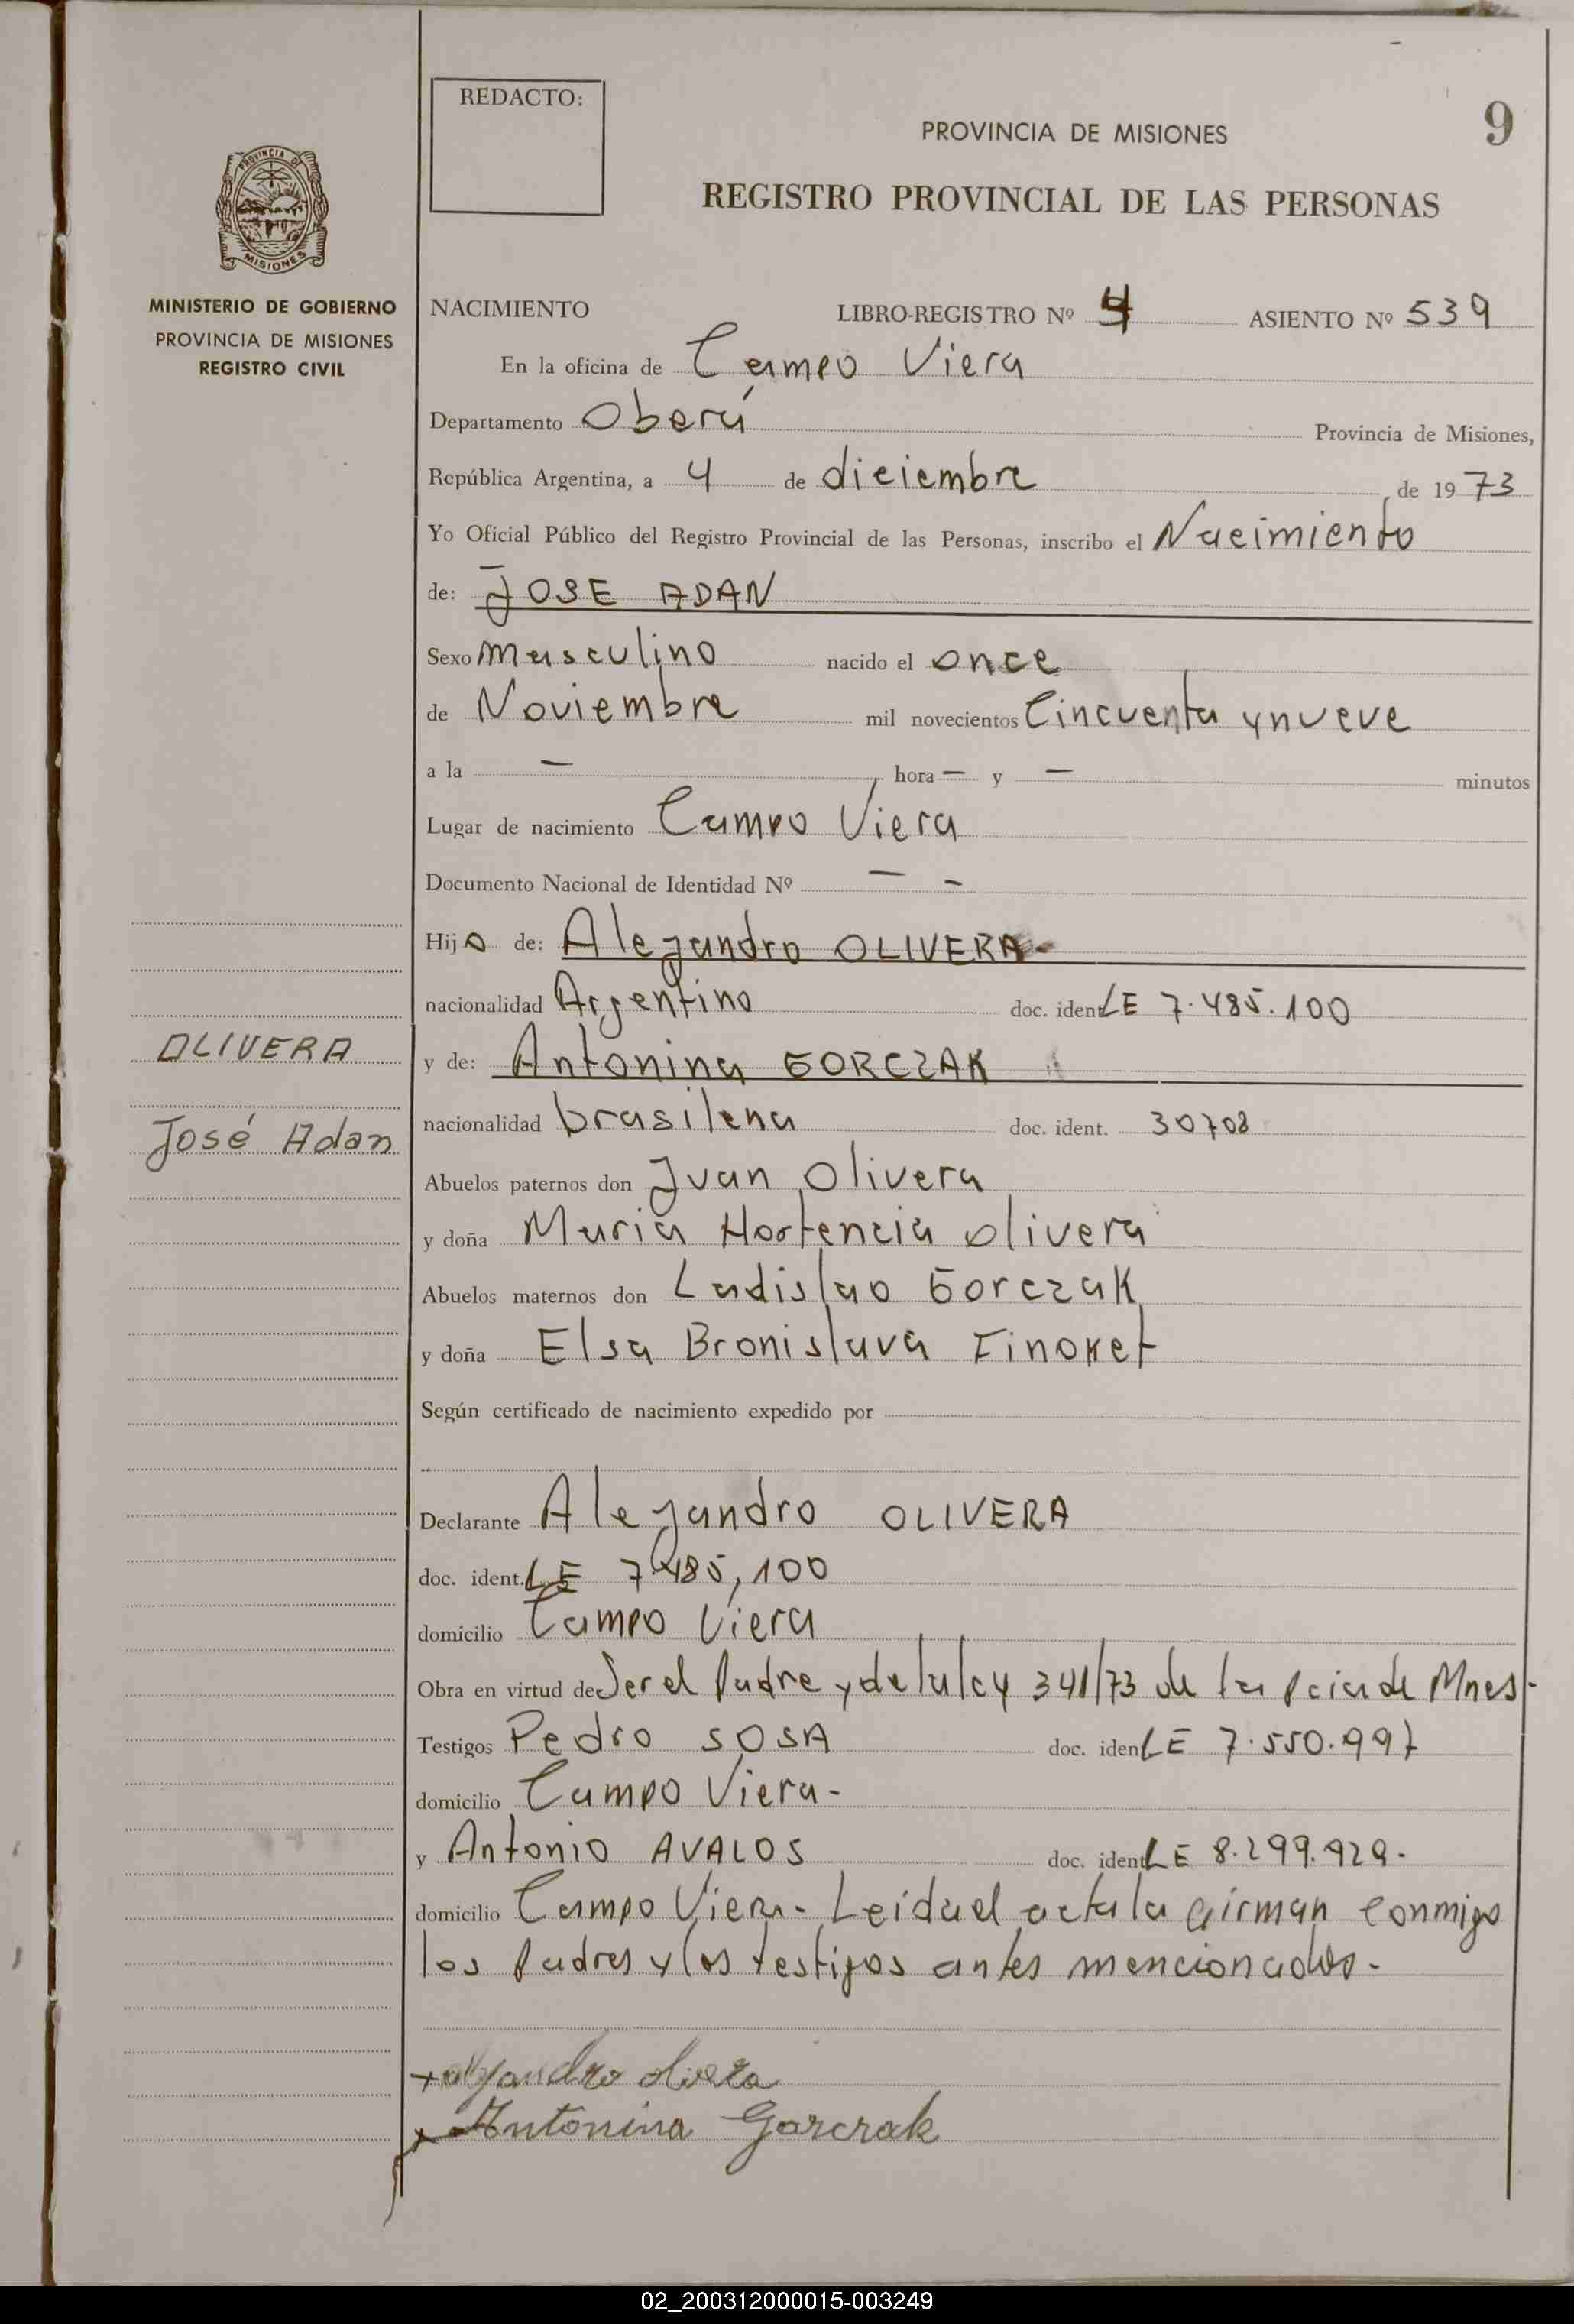 REDACTO:
9
PROVINCIA DE MISIONES
REGISTRO PROVINCIAL DE LAS PERSONAS
PROVINCIA DE
MISIONES
MINISTERIO DE GOBIERNO
PROVINCIA DE MISIONES
REGISTRO CIVIL
NACIMIENTO LIBRO-REGISTRO Nº 4 ASIENTO Nº 539
En la oficina de Campo Viera
Departamento Oberá Provincia de Misiones,
República Argentina, a 4 de diciembre de 1973
Yo Oficial Público del Registro Provincial de las Personas, inscribo el Nacimiento
de: JOSE ADAN
Sexo masculino nacido el once
de Noviembre mil novecientos Cincuenta y nueve
a la — hora — y — minutos
Lugar de nacimiento Campo Viera
Documento Nacional de Identidad Nº — -
Hijo de: Alejandro OLIVERA-
nacionalidad Argentino doc. ident LE 7.485.100
OLIVERA
y de: Antonina GORCZAK
nacionalidad brasilena doc. ident. 30708
José Adan
Abuelos paternos don Juan Olivera
y doña Maria Hortencia olivera
Abuelos maternos don Ladislao Gorczak
y doña Elsa Bronislava Finoket
Según certificado de nacimiento expedido por
Declarante Alejandro OLIVERA
doc. ident. LE 7.485,100
domicilio Campo Viera
Obra en virtud de Ser el Padre y de la ley 341/73 de la Pcia de Mnes-
Testigos Pedro SOSA doc. iden LE 7.550.997
domicilio Campo Viera-
y Antonio AVALOS doc. ident LE 8.299.929.
domicilio Campo Viera- Leida el acta la firman conmigo
los Padres y los testigos antes mencionados.-
x alejandro olivera
x Antonina Gorczak
02_200312000015-003249